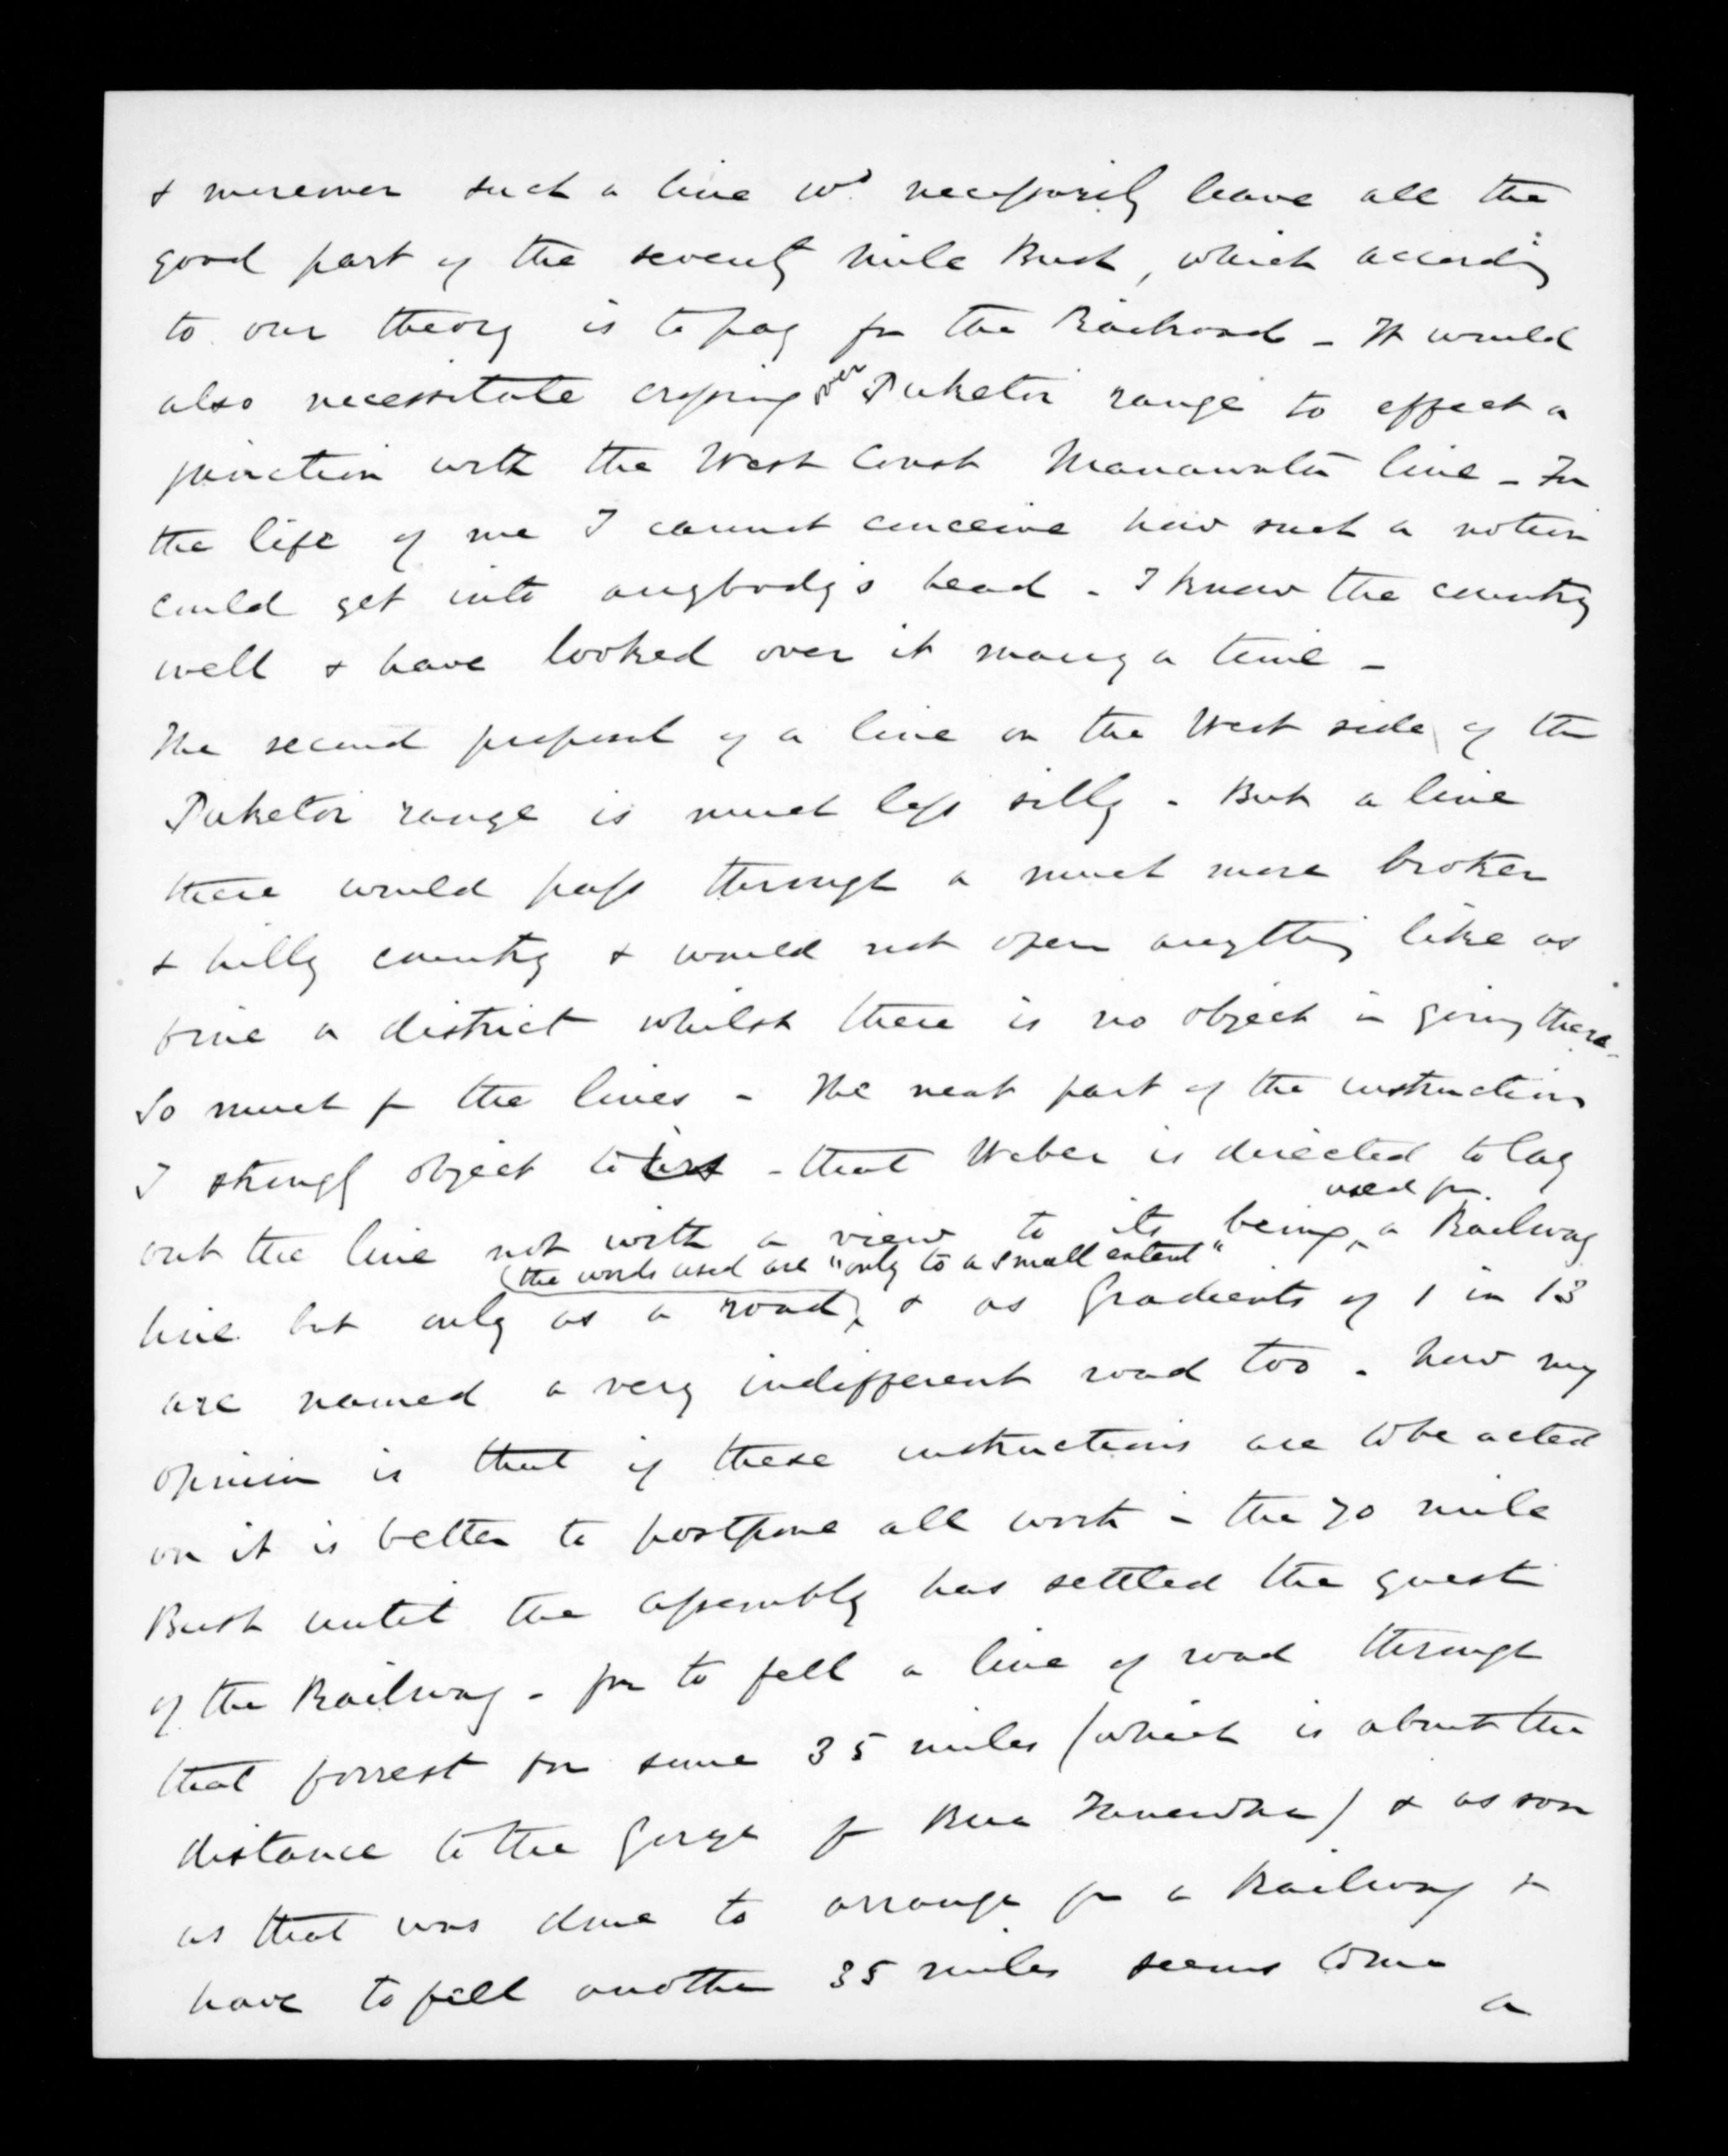 & moreover such a line wd necessarily leave all the
good part of the seventy mile Bush, which according
to our theory is to pay for the Railroad - It would
also necessitate crossing over Puketoi range to effect a
junction with the West Coast Manawatu line - For
the life of me I cannot conceive how such a notion
could get into anybody's head - I know the country
well & have looked over it many a time -
The second proposal of a line on the West side of the
Puketoi range is much less silly - But a line
there would pass through a much more broken
& hilly country & would not open anything like as
fine a district whilst there is no object in going there -
So much for the lines - The next part of the instructions
I strongly object to is - that Weber is directed to lay
used for
out the line not with a view to its being a Railway
(the words used are "only to a small extent"
line but only as a road, & as gradients of 1 in 13
are named a very indifferent road too - Now my
opinion is that if these instructions are to be acted
on it is better to postpone all work in the 70 mile
Bush until the assembly has settled the quest
of the Railway - for to fell a line of road through
that forrest for some 35 miles (which is about the
distance to the Gorge f Rua Taniwha) & as soon
as that was done to arrange for a Railway &
have to fell another 35 miles seems to me
a